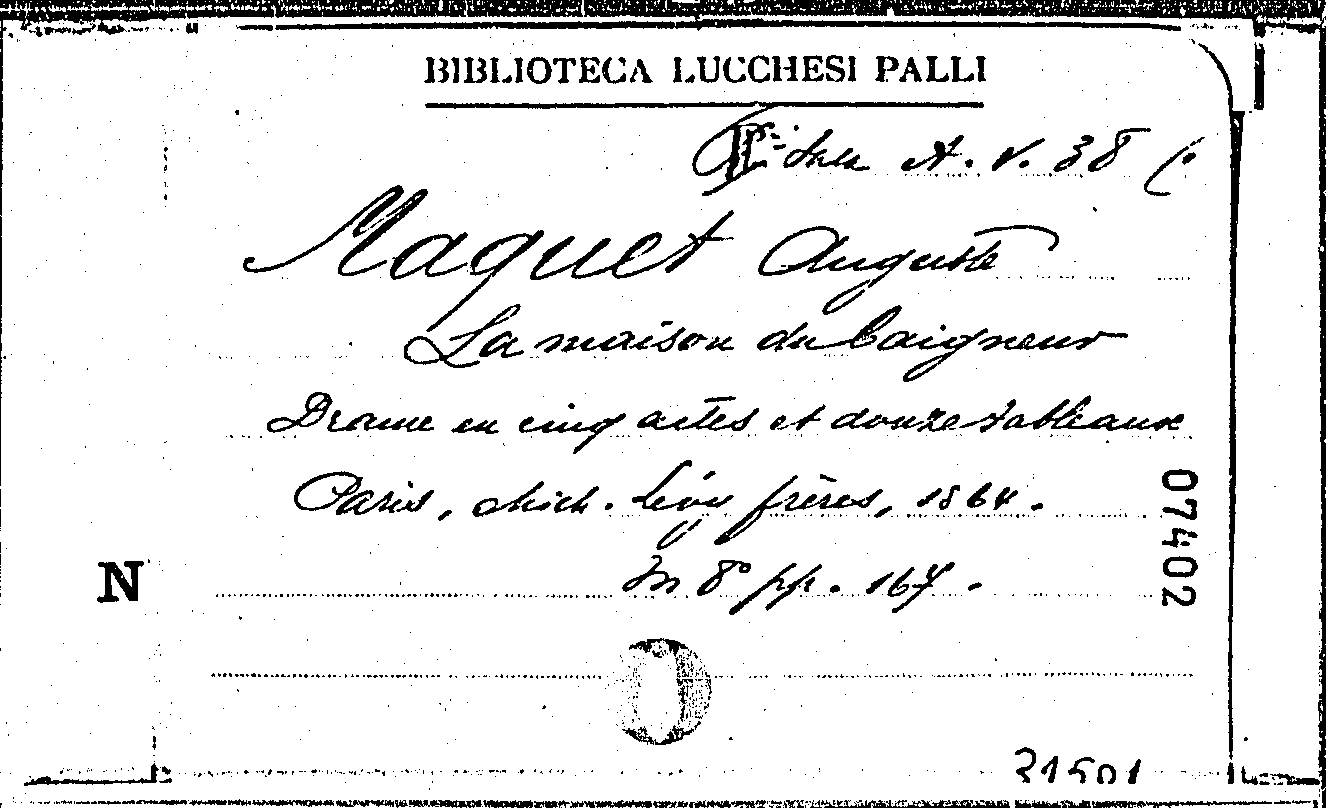 BIBLIOTECA LUCCHESI PALLI
Sala A. V. 38 (.
Maquet Auguste
La maison du baigneur
Drame en cinq actes et douze tableaux
Paris, Mich. Lévy frères, 1864.
In 8° pp. 167.
N
07402